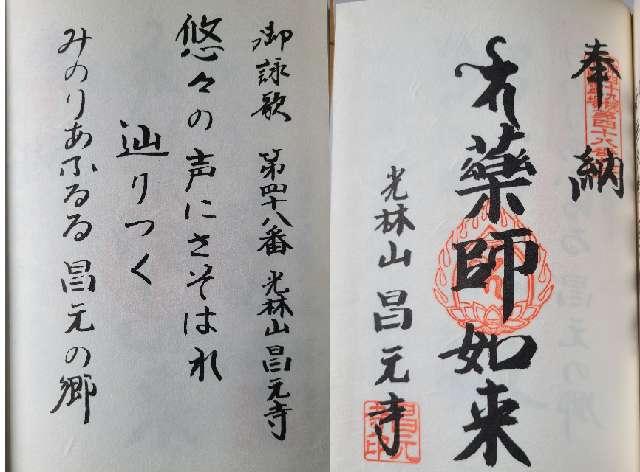 奉納
藥師如来
光林山 昌元寺
御詠歌 第四十八番 光林山 昌元寺
悠々の声にさそはれ
辿りつく
みのりあふるる 昌元の郷